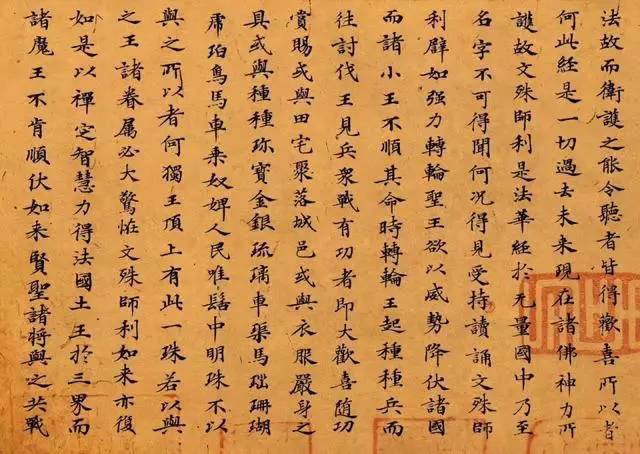 法故而衛護之能令聽者皆得歡喜所以者
何此經是一切過去未来現在諸佛神力所
護故文殊師利是法華經於无量國中乃至
名字不可得聞何況得見受持讀誦文殊師
利辟如强力轉輪聖王欲以威勢降伏諸國
而諸小王不順其命時轉輪王起種種兵而
往討伐王見兵衆戰有功者即大歡喜隨功
賞賜或與田宅聚落城邑或與衣服嚴身之
具或與種種珎寶金銀琉璃車璖馬瑙珊瑚
虎珀鳥馬車乘奴婢人民唯髻中明珠不以
與之所以者何獨王頂上有此一珠若以與
之王諸眷属必大驚恠文殊師利如来亦復
如是以禪定智慧力得法國土王於三界而
諸魔王不肯順伏如来賢聖諸將與之共戰